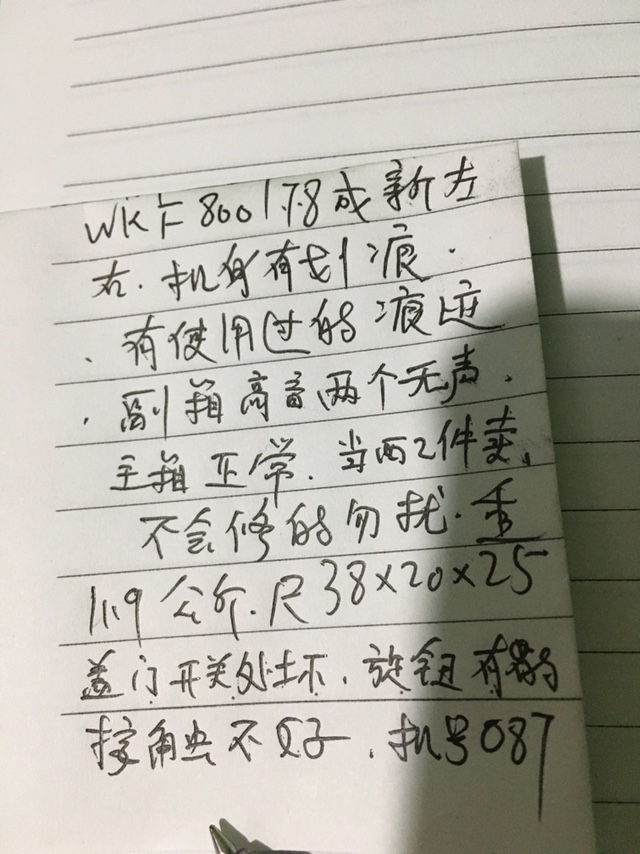 WK卡8001 7.8成新左
右.机身有划痕.
.有使用过的痕迹
.副箱高音两个无声.
主箱正常.当两2件卖.
不会修的勿扰.重
11.9公斤.尺38×20×25
盖门开关处坏.旋钮有的
接触不好.机号087